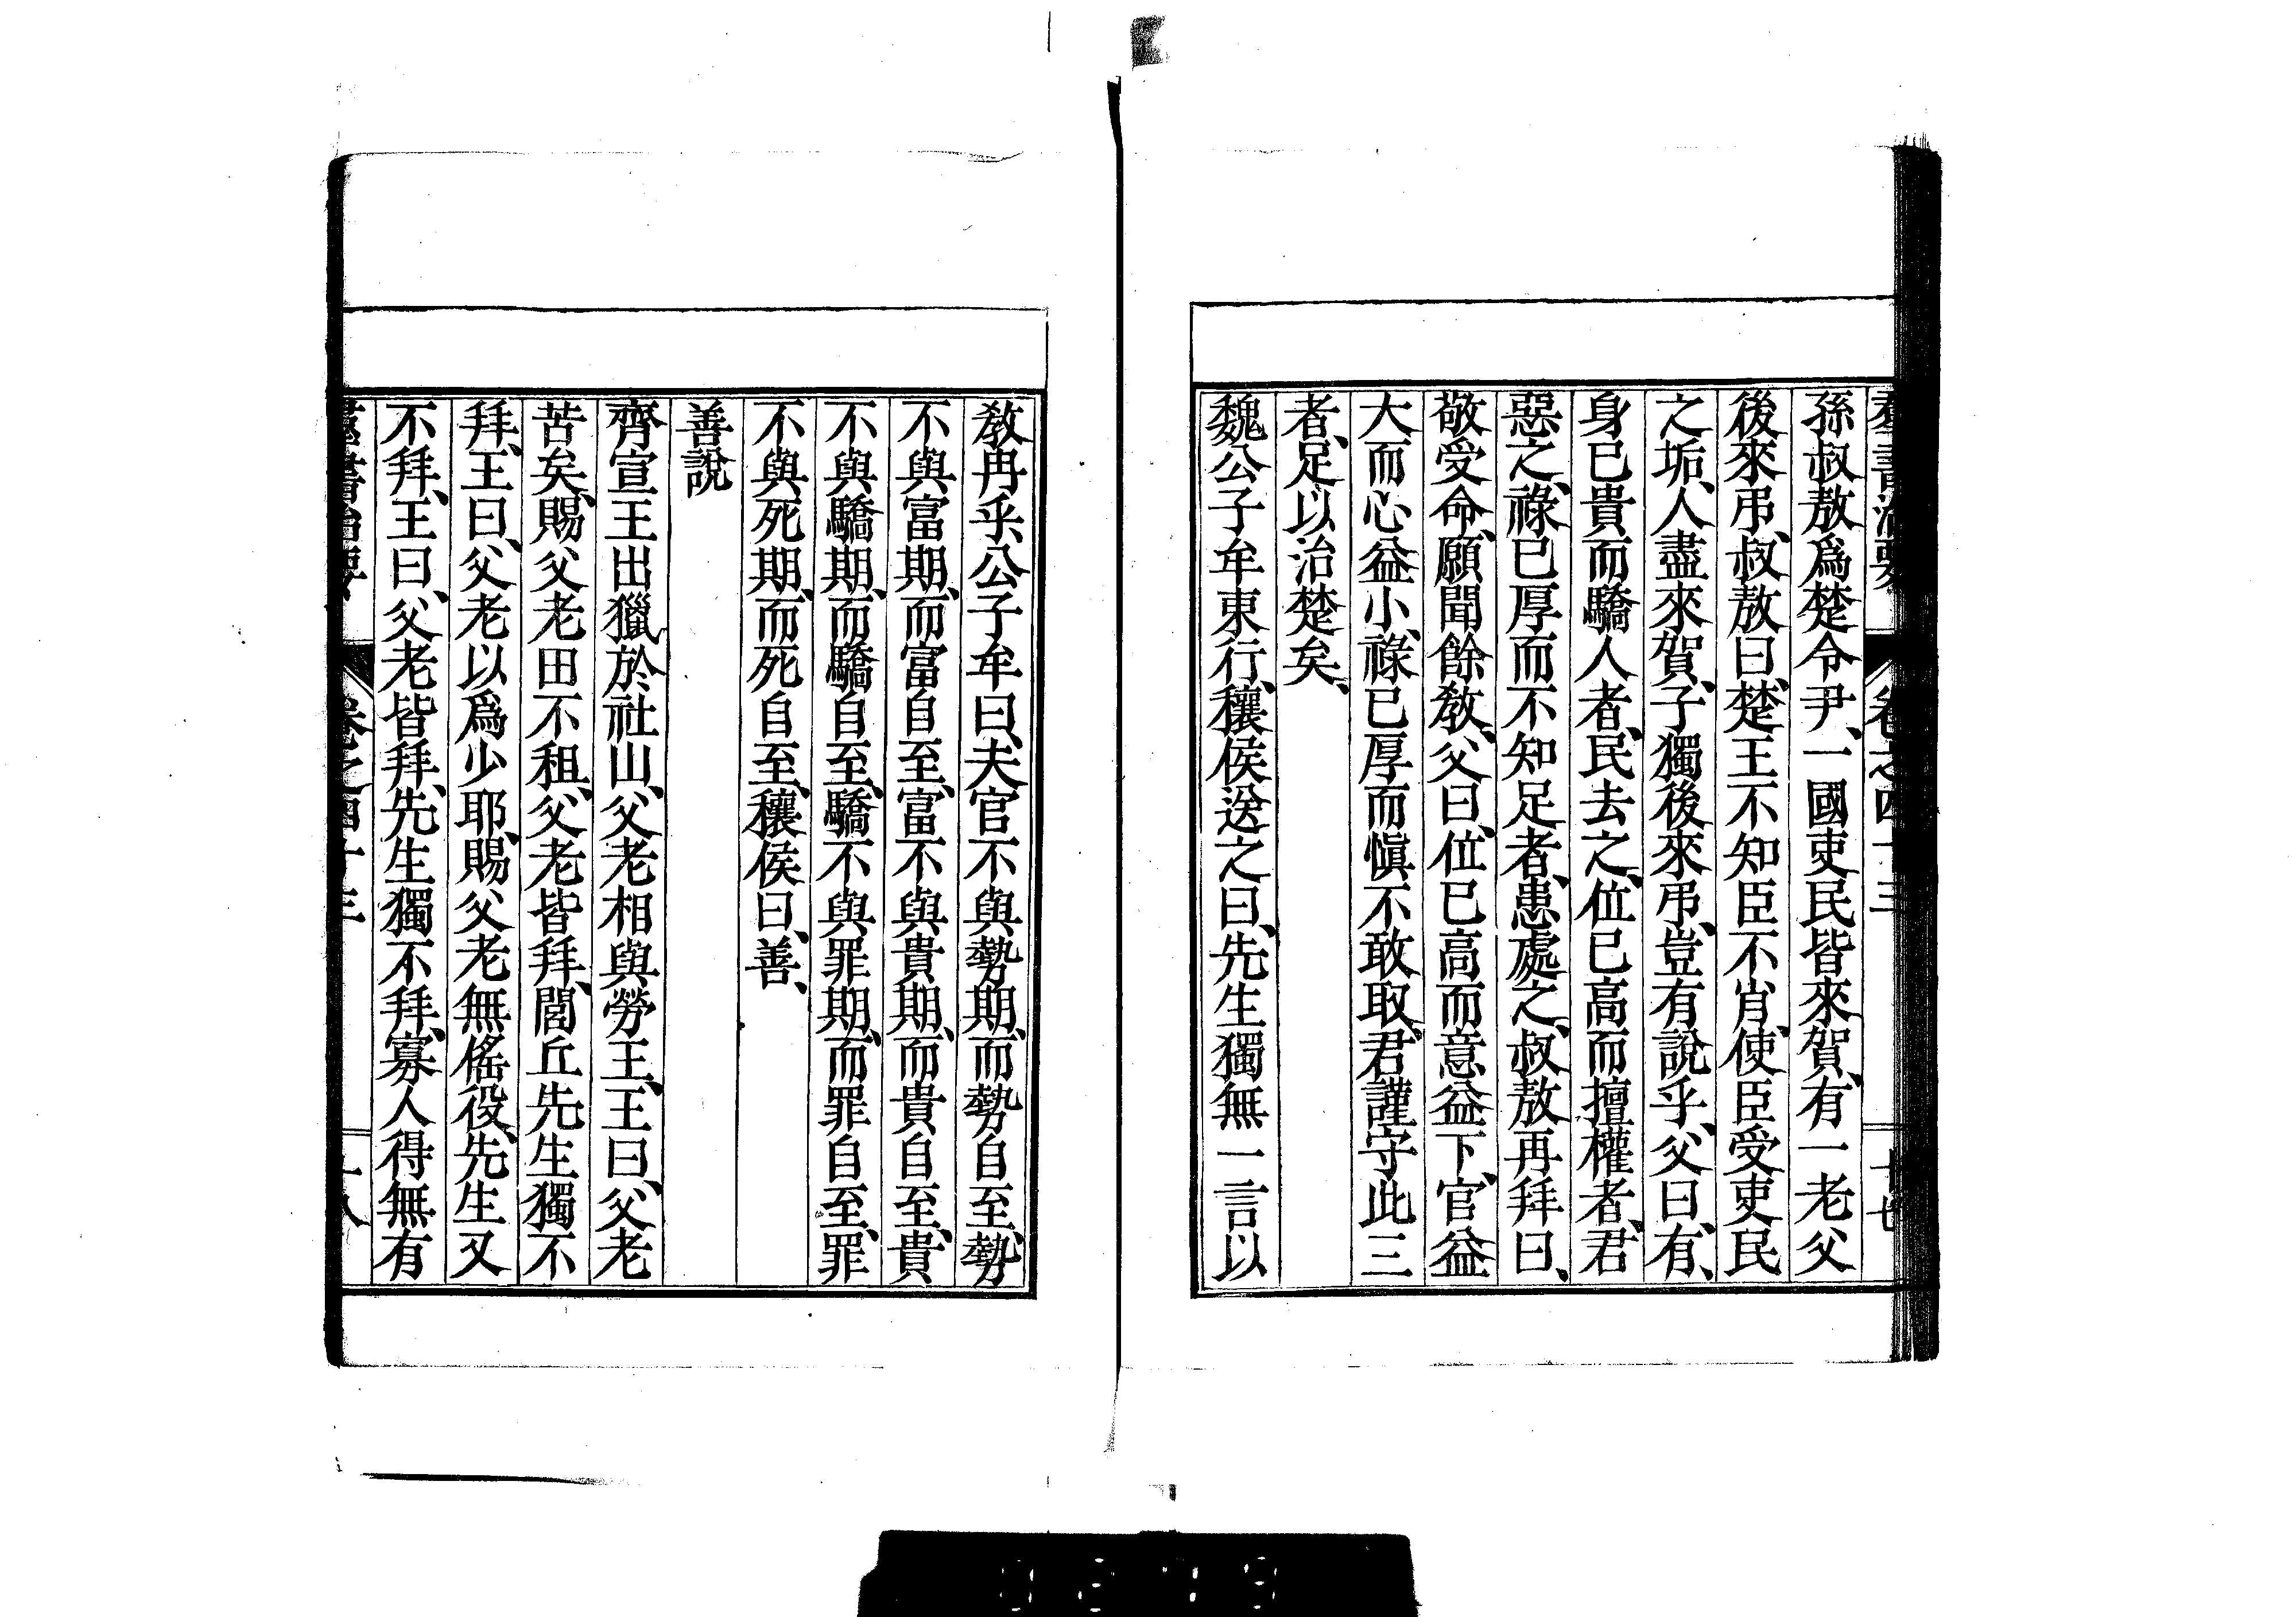 羣書治要 卷之四十三 十七
孫叔敖爲楚令尹、一國吏民皆來賀、有一老父
後來弔、叔敖曰、楚王不知臣不肖、使臣受吏民
之垢、人盡來賀、子獨後來弔、豈有說乎、父曰、有、
身已貴而驕人者、民去之、位已高而擅權者、君
惡之、祿已厚而不知足者、患處之、叔敖再拜曰、
敬受命、願聞餘敎、父曰、位已高而意益下、官益
大而心益小、祿已厚而愼不敢取、君謹守此三
者、足以治楚矣、
魏公子牟東行、穰侯送之曰、先生獨無一言以
敎冉乎、公子牟曰、夫官不與勢期、而勢自至、勢
不與富期、而富自至、富不與貴期、而貴自至、貴
不與驕期、而驕自至、驕不與罪期、而罪自至、罪
不與死期、而死自至、穰侯曰、善、
善說
齊宣王出獵於社山、父老相與勞王、王曰、父老
苦矣、賜父老田不租、父老皆拜、閭丘先生獨不
拜、王曰、父老以爲少耶、賜父老無徭役、先生又
不拜、王曰、父老皆拜、先生獨不拜、寡人得無有
羣書治要 卷之四十三 十八